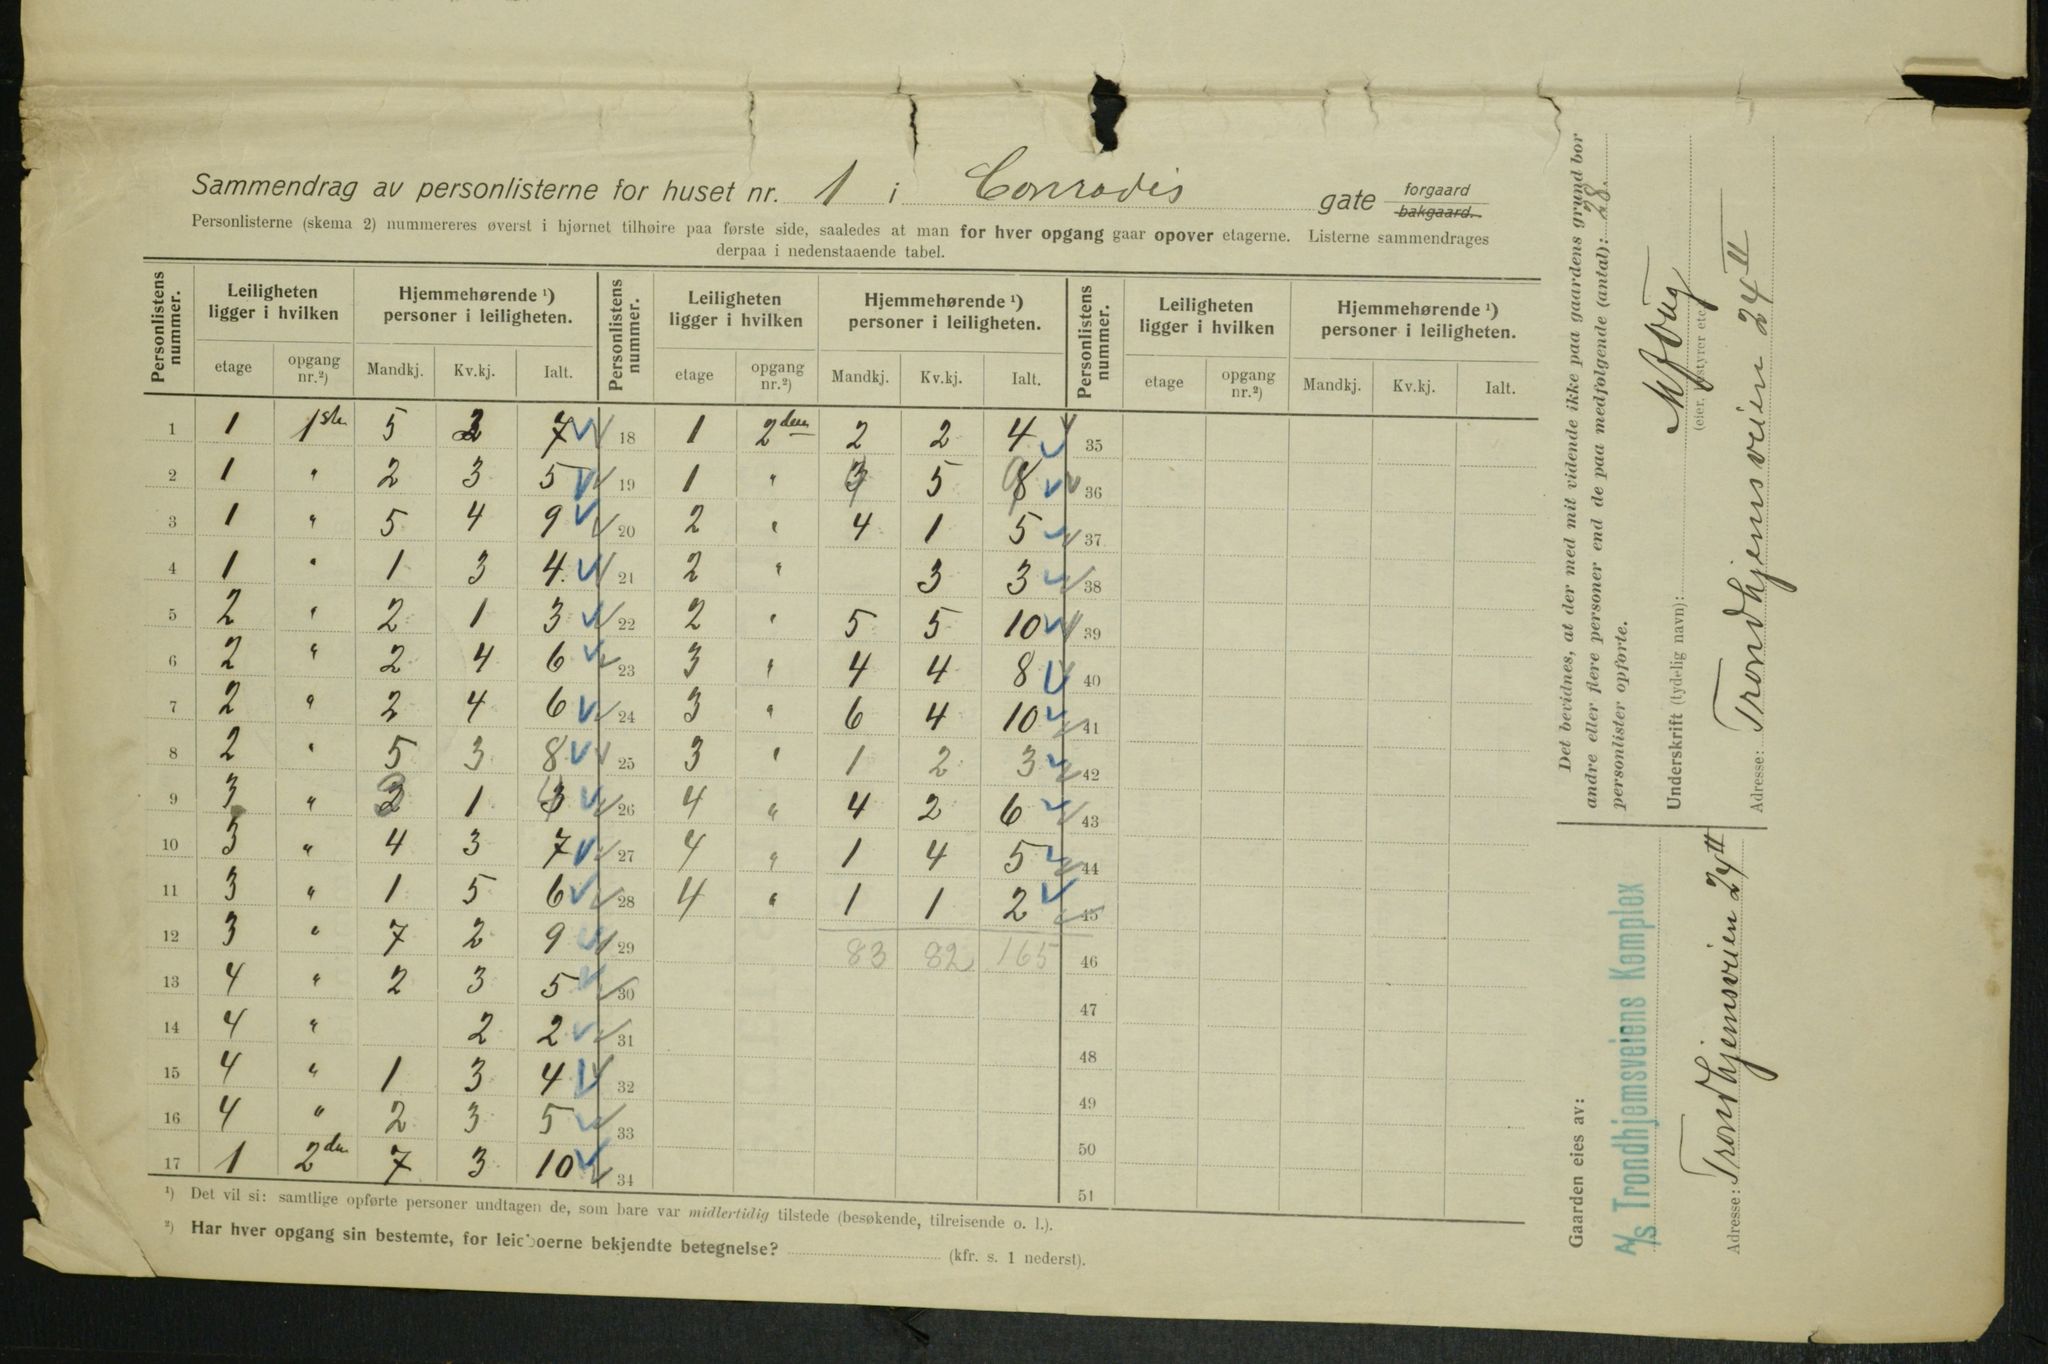 Sammendrag av personlisterne for huset nr. 1 i Conradis gate forgaard bakgaard.
Personlisterne (skema 2) nummereres øverst i hjørnet tilhøire paa første side, saaledes at man for hver opgang gaar opover etagerne. Listerne sammendrages
derpaa i nedenstaaende tabel.
Personlistens nummer. Leiligheten ligger i hvilken Hjemmehørende ¹) personer i leiligheten. Personlistens nummer. Leiligheten ligger i hvilken Hjemmehørende ¹) personer i leiligheten. Personlistens nummer. Leiligheten ligger i hvilken Hjemmehørende ¹) personer i leiligheten.
etage opgang nr.²) Mandkj. Kv.kj. Ialt. etage opgang nr.²) Mandkj. Kv.kj. Ialt. etage opgang nr.²) Mandkj. Kv.kj. Ialt.
1 1 1ste 5 2 7 18 1 2den 2 2 4 35
2 1 " 2 3 5 19 1 " 5 36
3 1 " 5 4 9 20 2 " 4 1 5 37
4 1 " 1 3 4 21 2 " 3 3 38
5 2 " 2 1 3 22 2 " 5 5 10 39
6 2 " 2 4 6 23 3 " 4 4 8 40
7 2 " 2 4 6 24 3 " 6 4 10 41
8 2 " 5 3 8 25 3 " 1 2 3 42
9 3 " 3 1 4 26 4 " 4 2 6 43
10 3 " 4 3 7 27 4 " 1 4 5 44
11 3 " 1 5 6 28 4 " 1 1 2 45
12 3 " 7 2 9 29 83 82 165 46
13 4 " 2 3 5 30 47
14 4 " 2 2 31 48
15 4 " 1 3 4 32 49
16 4 " 2 3 5 33 50
17 1 2den 7 3 10 34 51
¹) Det vil si: samtlige opførte personer undtagen de, som bare var midlertidig tilstede (besøkende, tilreisende o. l.).
²) Har hver opgang sin bestemte, for leieboerne bekjendte betegnelse? (kfr. s. 1 nederst).
Det bevidnes, at der med mit vidende ikke paa gaardens grund bor
andre eller flere personer end de paa medfølgende (antal): 28
personlister opførte.
Underskrift (tydelig navn):
(eier, bestyrer etc.)
Adresse: Trondhjemsveien 24 II
Gaarden eies av:
A/S Trondhjemsveiens Komplex
Adresse: Trondhjemsveien 24 II